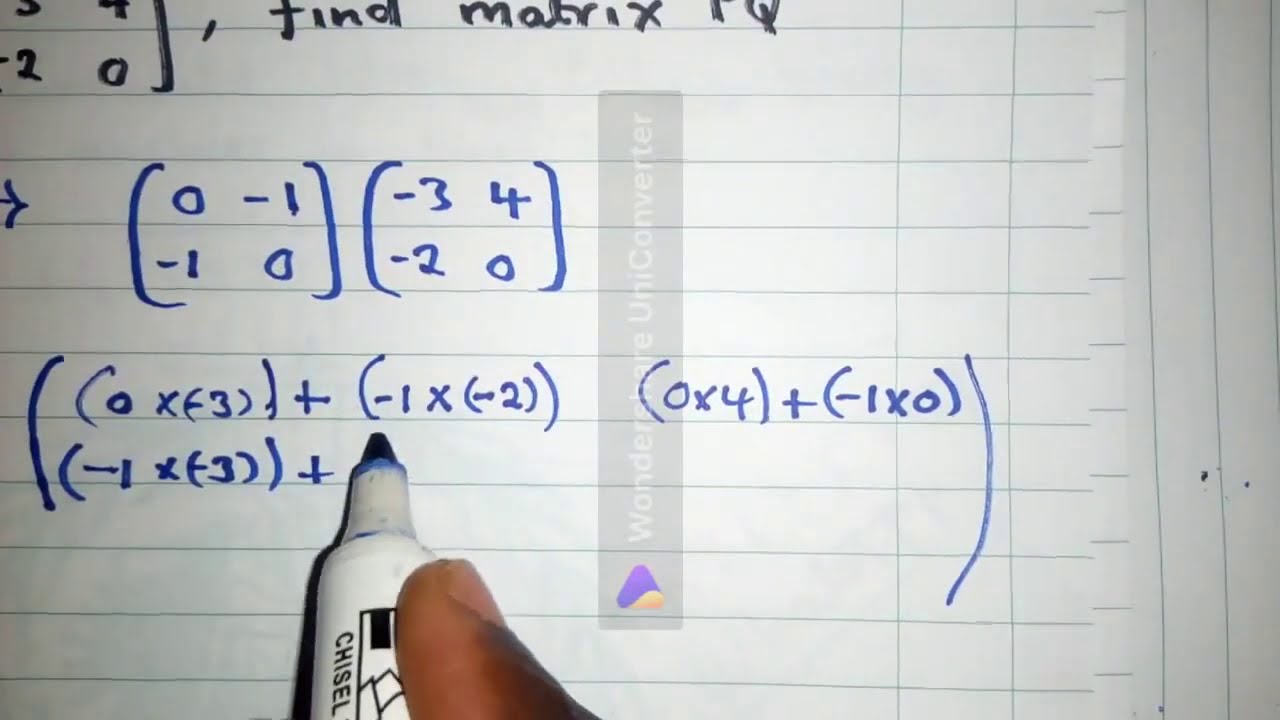 3 4
-2 0 ] , find matrix PQ
→ [ 0 -1 ] [ -3 4 ]
[ -1 0 ] [ -2 0 ]
( (0 x(-3)) + (-1 x (-2)) (0x4) + (-1x0) )
(-1 x(-3)) +
Wondershare UniConverter
CHISEL